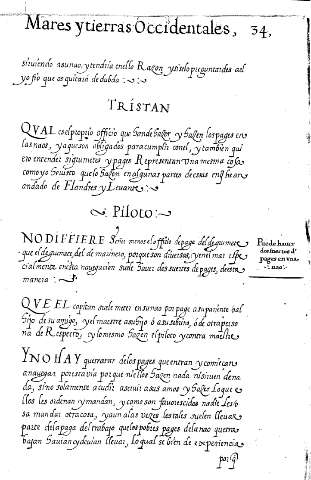 Mares y tierras Occidentales, 34,
siruiendo asu uso, y tendria en ello Razon, y si se lo preguntaides a el
yo fio que os quitaso de dubda
TRISTAN
QVAL es el proprio officio que han de hazer, y hazen los pages en
las naos, y a que son obligados para cumplir con el, y tambien qui
ero entender si grumetes y pages Representan vna mesma cosa
como yo he visto que lo hazen en algunas partes de essas en que an
andado de Flandres y Leuante
Piloto
NO DIFFIERE Señor menos el officio de page del de grumete
que el de grumete, del de marinero, porque son diuersos, y en el mar espe
cialmente en esta nauegacion suele hauer dos suertes de pages, de esta
manera
Puede hauer
dos suertes d'
pages en vna
nao
QVE EL capitan suele meter en su nao por page a su pariente o al
hijo de su amigo, y el maestre a su hijo o a su sobrino, o de otra perso
na de Respecto, y lo mesmo hazen el piloto y contra maestre
Y NO HAY que tratar de los pages que entran, y comiençan
a nauegar por esta via porque ellos hazen nada ni siruen de na
da, sino solamente acudir a seruir a sus amos y hazer lo que e
llos les ordenan y mandan, y como son fauorescidos nadie les o
sa mandar otra cosa, y aun algunas vezes los tales suelen lleuar
parte de la paga del trabajo que los pobres pages de la nao que tra
bajan hauian y deuian lleuar, lo qual se bien de experiencia
por q